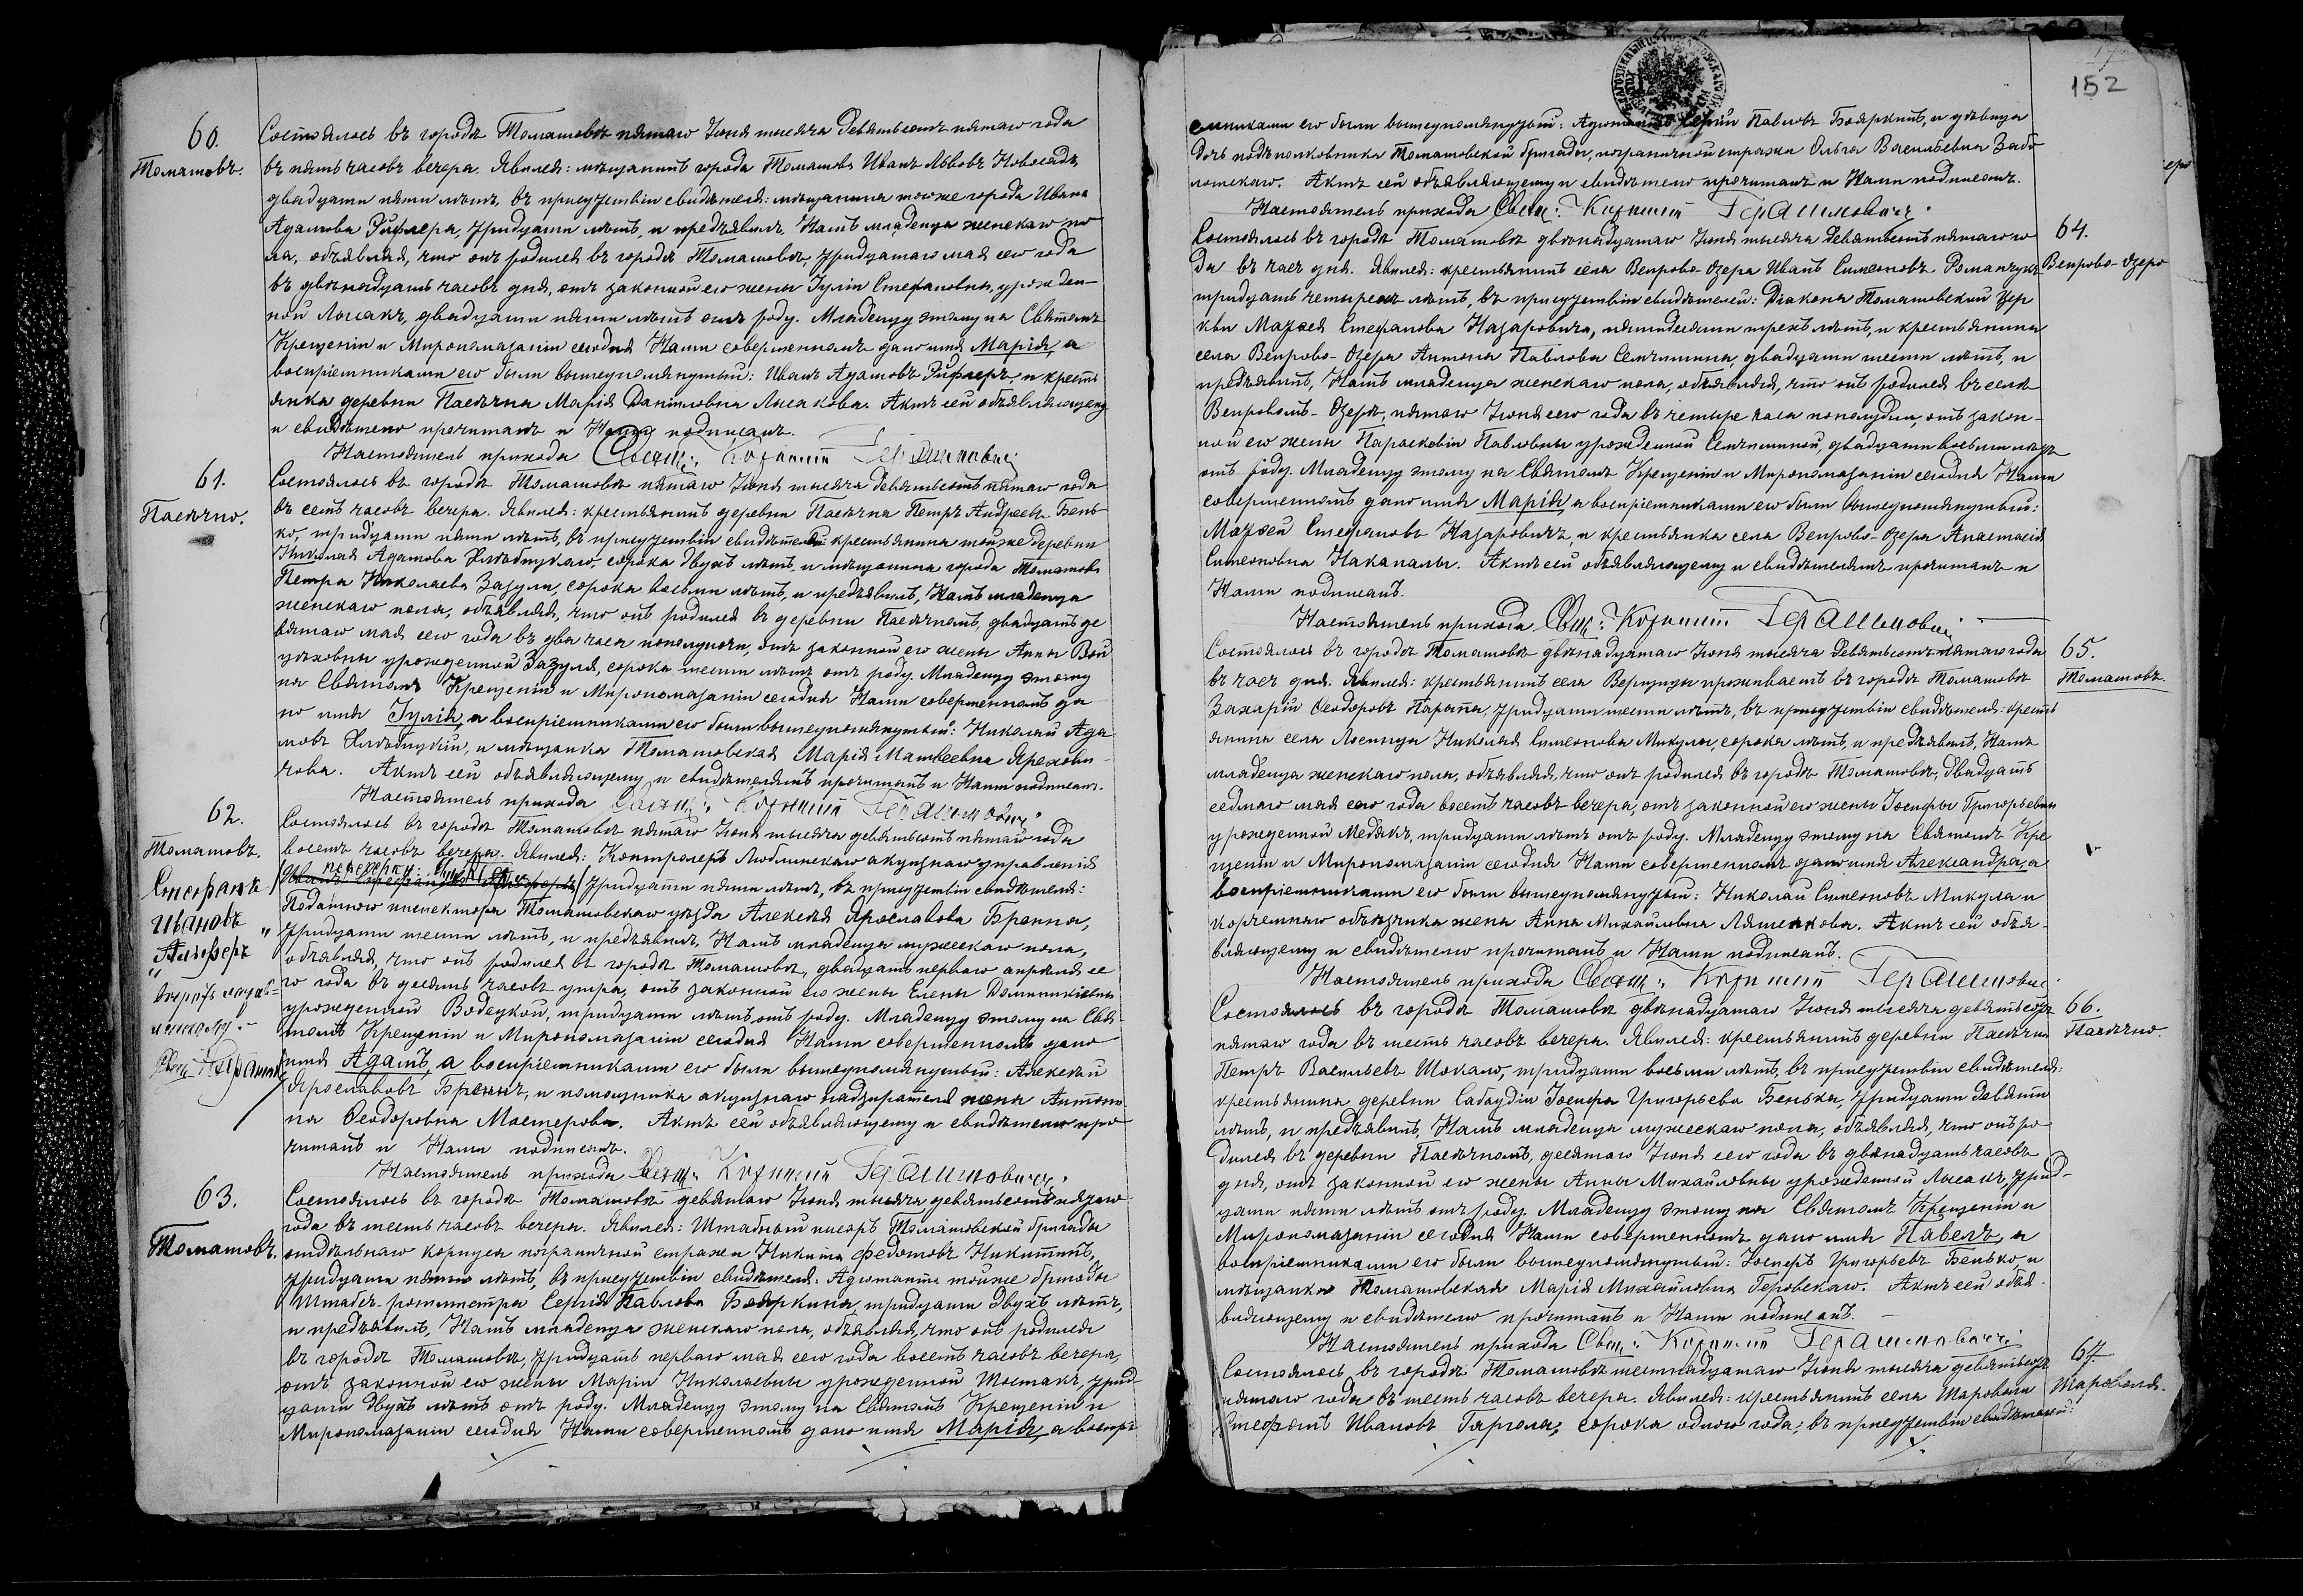 60.
Томашовъ.
Состоялось въ городѣ Томашовѣ пятаго Іюня тысяча девятьсотъ пятаго года
въ пять часовъ вечера. Явился: мѣщанинъ города Томашова Иванъ Львовъ Новосадъ,
двадцати пяти лѣтъ, въ присутствіи свидѣтеля: мѣщанина тогоже города Ивана
Адамова Рифлера, тридцати лѣтъ, и предъявилъ Намъ младенца женскаго по
ла, объявляя, что онъ родился въ городѣ Томашовѣ, тридцатаго мая сего года
въ двѣнадцать часовъ дня, отъ законной его жены Іуліи Стефановны, урожден-
ной Лысакъ, двадцати пяти лѣтъ отъ роду. Младенцу этому на Святомъ
Крещеніи и Миропомазаніи сегодня Нами совершенномъ дано имя Марія, а
воспріемниками его были вышеупомянутый: Иванъ Адамовъ Рифлеръ, и кресть
янка деревни Пасѣчна Марія Даніиловна Лысакова. Актъ сей объявляющему
и свидѣтелю прочитанъ и Нами подписанъ.
Настоятель прихода Свящ: Корнилій Герасимовичъ
61.
Пасѣчно.
Состоялось въ городѣ Томашовѣ пятаго Іюня тысяча девятьсотъ пятаго года
въ семь часовъ вечера. Явился: крестьянинъ деревни Пасѣчна Петръ Андреевъ Бень
ко, тридцати пяти лѣтъ, въ присутствіи свидѣтелей крестьянина тойже деревни
Николая Адамова Хлѣбицкаго, сорока двухъ лѣтъ, и мѣщанина города Томашова
Петра Николаева Зазули, сорока восьми лѣтъ, и предъявилъ, Намъ младенца
женскаго пола, объявляя, что онъ родился въ деревни Пасѣчномъ, двадцать де
вятаго мая сего года въ два часа пополуночи, отъ законной его жены Анны Вой
цѣховны урожденной Зазуля, сорока шести лѣтъ отъ роду. Младенцу этому
на Святомъ Крещеніи и Миропомазаніи сегодня Нами совершенномъ да
но имя Іулія, а воспріемниками его были вышеупомянутый: Николай Ада
мовъ Хлѣбицкій, и мѣщанка Томашовская Марія Матѳеевна
чова. Актъ сей объявляющему и свидѣтелямъ прочитанъ и Нами подписанъ.
Настоятель прихода Свящ: Корнилій Герасимовичъ
62.
Томашовъ.
Стефанъ
Ивановъ
Состоялось въ городѣ Томашовѣ пятаго Іюня тысяча девятьсотъ пятаго года
восемь часовъ вечера. Явился: Контролеръ Люблинскаго акцизнаго управленія
тридцати пяти лѣтъ, въ присутствіи свидѣтеля:
Податного инспектора Томашовскаго уѣзда Алексѣя Ярославова Бренна,
тридцати шести лѣтъ, и предъявилъ, Намъ младенца мужескаго пола,
объявляя, что онъ родился въ городѣ Томашовѣ, двадцать перваго апрѣля се
го года въ десять часовъ утра, отъ законной его жены Елены Доминикіевны
урожденной Водецкой, тридцати лѣтъ отъ роду. Младенцу этому на Свя
томъ Крещеніи и Миропомазаніи сегодня Нами совершенномъ дано
имя Адамъ, а воспріемниками его были вышеупомянутый: Алексѣй
Ярославовъ Бреннъ, и помощника акцизнаго надзирателя жена Антони
на Ѳеодоровна Мастерова. Актъ сей объявляющему и свидѣтелю про
читанъ и Нами подписанъ.
Настоятель прихода Свящ: Корнилій Герасимовичъ.
63.
Томашовъ.
Состоялось въ городѣ Томашовѣ девятаго Іюня тысяча девятьсотъ пятаго
года въ шесть часовъ вечера. Явился: Штабный писарь Томашовской бригады
отдѣльнаго корпуса пограничной стражи Никита Федотовъ Никитинъ,
тридцати пяти лѣтъ, въ присутствіи свидѣтеля: Адютанта тойже бригады
Штабсъ-ротмистра Сергія Павлова Бояркина, тридцати двухъ лѣтъ,
и предъявилъ, Намъ младенца женскаго пола, объявляя, что онъ родился
въ городѣ Томашовѣ, тридцать перваго мая сего года восемь часовъ вечера,
отъ законной его жены Маріи Николаевны урожденной Шостакъ, трид
цати двухъ лѣтъ отъ роду. Младенцу этому на Святомъ Крещеніи и
Миропомазаніи сегодня Нами совершенномъ дано имя Марія, а воспрі
152
емниками его были вышеупомянутый: Адютантъ Сергій Павловъ Бояркинъ, и дѣвица
дочь подъполковника Томашовской бригады, пограничной стражи Ольга Васильевна Забо
лотскаго. Актъ сей объявляющему и свидѣтелю прочитанъ и Нами подписанъ.
Настоятель прихода Свящ: Корнилій Герасимовичъ.
64.
Вепрово-Озеро
Состоялось въ городѣ Томашовѣ двѣнадцатаго Іюня тысяча девятьсотъ пятаго го
да въ часъ дня. Явился: крестьянинъ села Вепрово-Озера Иванъ Симеоновъ Романчукъ
тридцать четырехъ лѣтъ, въ присутствіи свидѣтелей: Діакона Томашовской Цер
кви Матѳея Стефанова Назаровича, пятидесяти трехъ лѣтъ, и крестьянина
села Вепрово-Озера Антона Павлова Семчишина, двадцати шести лѣтъ, и
предъявилъ, Намъ младенца женскаго пола, объявляя, что онъ родился въ селѣ
Вепровомъ-Озерѣ, пятаго Іюня сего года въ четыре часа пополудни, отъ закон-
ной его жены Параскевіи Павловны урожденной Семчишиной, двадцати восьми лѣтъ
отъ роду. Младенцу этому на Святомъ Крещеніи и Миропомазаніи сегодня Нами
совершенномъ дано имя Марія, а воспріемниками его были вышеупомянутый:
Матѳей Стефановъ Назаровичъ, и крестьянка села Вепрово-Озера Анастасія
Симеоновна Накапалы. Актъ сей объявляющему и свидѣтелямъ прочитанъ и
Нами подписанъ.
Настоятель прихода Свящ: Корнилій Герасимовичъ
65.
Томашовъ.
Состоялось въ городѣ Томашовѣ двѣнадцатаго Іюня тысяча девятьсотъ пятаго года
въ часъ дня. Явился: крестьянинъ села Верщицы проживаетъ въ городѣ Томашовѣ
Захарій Ѳеодоровъ Парыпа, тридцати шести лѣтъ, въ присутствіи свидѣтеля: кресть
янина села Лосинца Николая Симеонова Микулы, сорока лѣтъ, и предъявилъ, Намъ
младенца женскаго пола, объявляя, что онъ родился въ городѣ Томашовѣ, двадцать
седмаго мая сего года восемь часовъ вечера, отъ законной его жены Іосифы Григорьевны
урожденной Медякъ, тридцати лѣтъ отъ роду. Младенцу этому на Святомъ Кре
щеніи и Миропомазаніи сегодня Нами совершенномъ дано имя Александра, а
воспріемниками его были вышеупомянутый: Николай Симеоновъ Микула и
корчемнаго объѣзчика жена Анна Михайловна Ляшенкова. Актъ сей объя-
вляющему и свидѣтелю прочитанъ и Нами подписанъ.
Настоятель прихода Свящ: Корнилій Герасимовичъ
66.
Пасѣчно.
Состоялось въ городѣ Томашовѣ двѣнадцатаго Іюня тысяча девятьсотъ
пятаго года въ шесть часовъ вечера. Явился: крестьянинъ деревни Пасѣчна
Петръ Васильевъ Шокало, тридцати восьми лѣтъ, въ присутствіи свидѣтеля:
крестьянина деревни Сабаудіи Іосифа Григорьева Бенька, тридцати девяти
лѣтъ, и предъявилъ, Намъ младенца мужескаго пола, объявляя, что онъ ро
дился въ деревни Пасѣчномъ, десятаго Іюня сего года въ двѣнадцать часовъ
дня, отъ законной его жены Анны Михайловны урожденной Лысакъ, трид-
цати пяти лѣтъ отъ роду. Младенцу этому на Святомъ Крещеніи и
Миропомазаніи сегодня Нами совершенномъ дано имя Павелъ, а
воспріемниками его были вышеупомянутый: Іосифъ Григорьевъ Бенько, и
мѣщанка Томашовская Марія Михайловна Геровскаго. Актъ сей объя-
вляющему и свидѣтелю прочитанъ и Нами подписанъ.
Настоятель прихода Свящ: Корнилій Герасимовичъ
67.
Тарноволя.
Состоялось въ городѣ Томашовѣ шестнадцатаго Іюня тысяча девятьсотъ
пятаго года въ шесть часовъ вечера. Явился: крестьянинъ села
Стефанъ Ивановъ Гаргола, сорока одного года, въ присутствіи свидѣтелей: